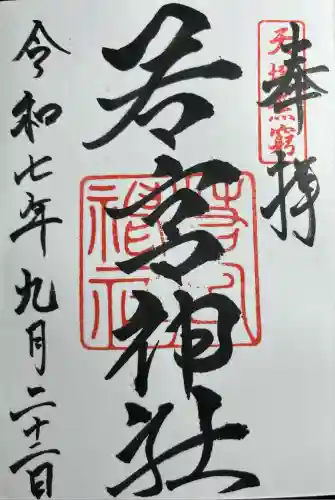 奉拝
天壌無窮
若宮神社
若宮神社
令和七年九月二十二日